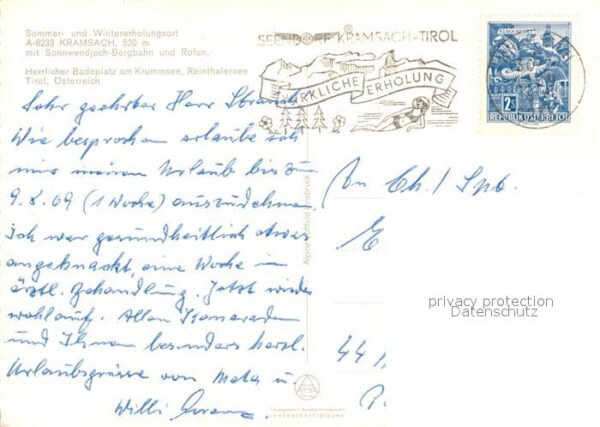 Sommer- und Wintererholungsort
A-6233 KRAMSACH, 520 m
mit Sonnwendjoch-Bergbahn und Rofan,
Herrlicher Badeplatz am Krummsee, Reinthalersee
Tirol, Österreich
SEENDORF KRAMSACH-TIROL
WIRKLICHE ERHOLUNG
2S
REPUBLIK ÖSTERREICH
Sehr geehrter Herr
Wie besprochen erlaube ich
mir meinen Urlaub bis zum
9.8.69 (1 Woche) auszudehnen.
Ich war gesundheitlich etwas
angeknackt, eine Woche in
ärztl. Behandlung. Jetzt wieder
wohlauf. Allen Kameraden
und Ihnen besonders herzl.
Urlaubsgrüsse von Meta u.
Willi
An Ch./
E
44
privacy protection
Datenschutz